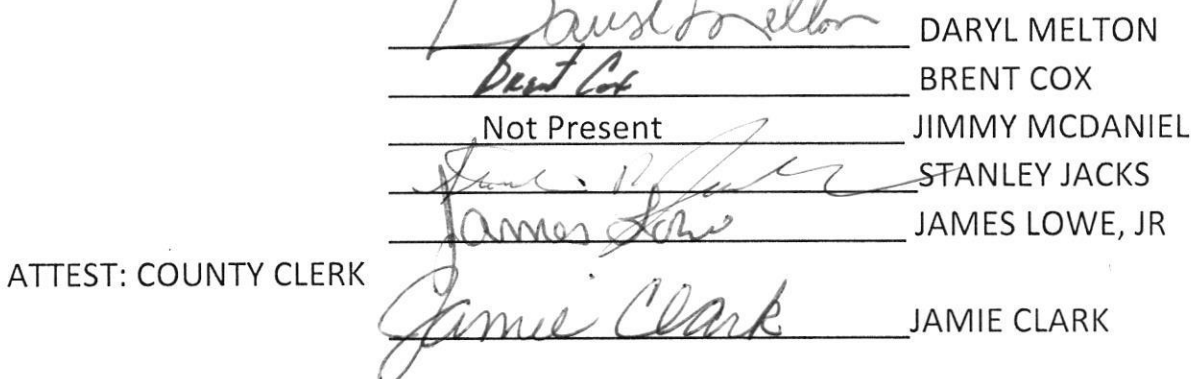 Daryl Melton DARYL MELTON
Brent Cox BRENT COX
Not Present JIMMY MCDANIEL
STANLEY JACKS
James Lowe JAMES LOWE, JR
ATTEST: COUNTY CLERK
Jamie Clark JAMIE CLARK